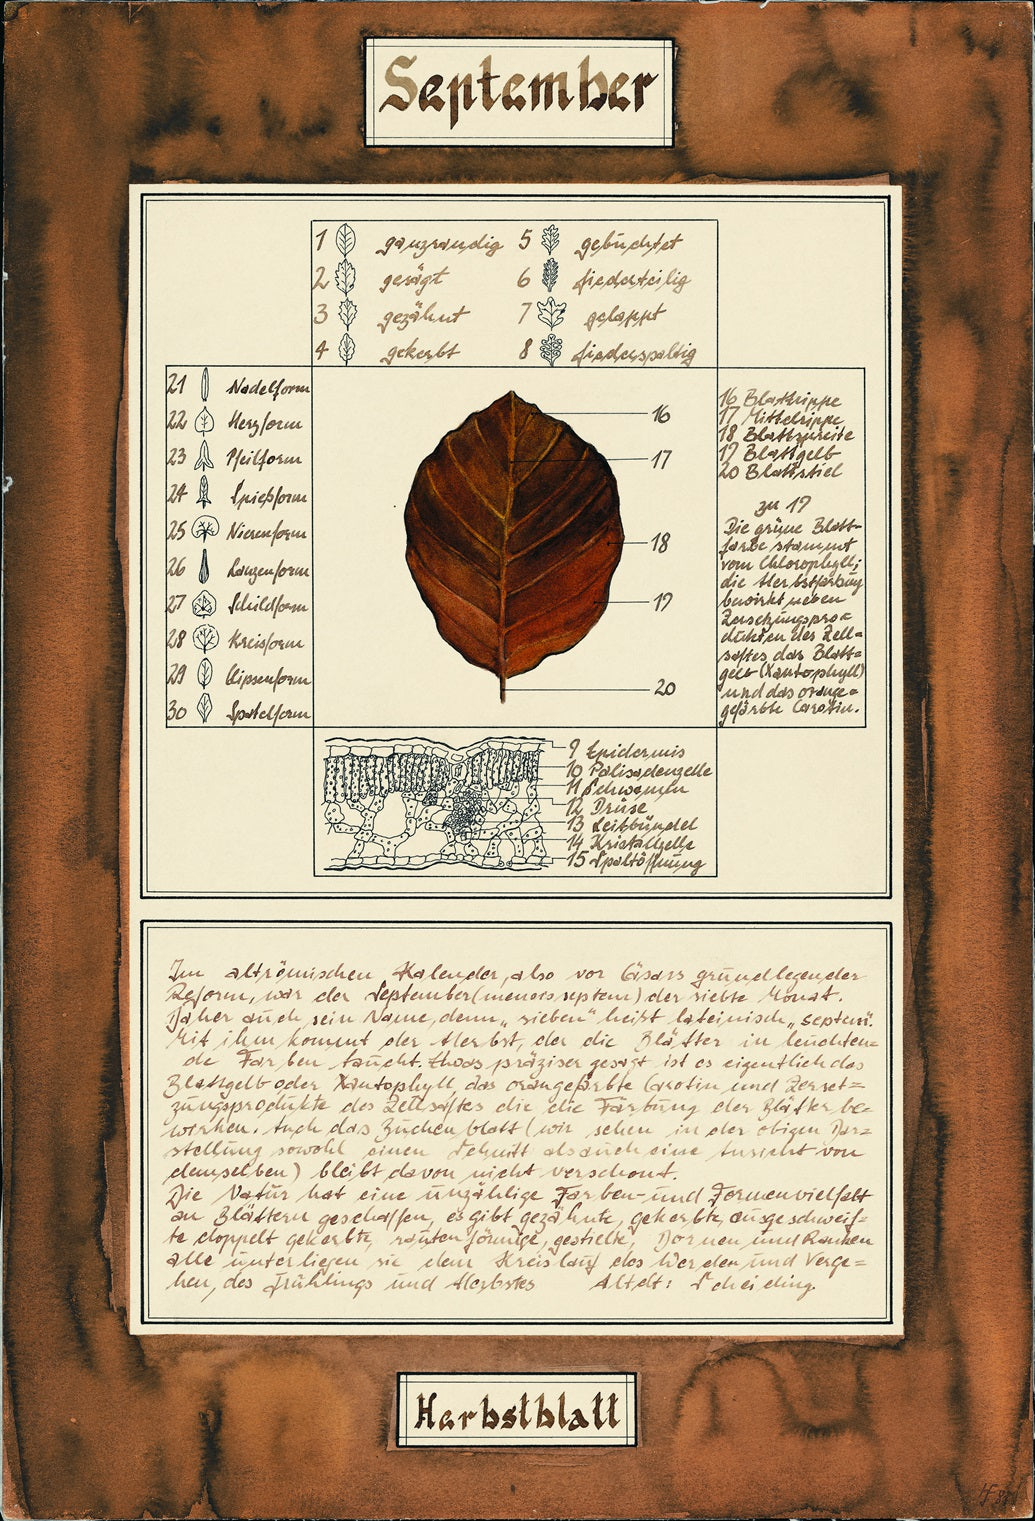 September
1 ganzrandig 5 gebuchtet
2 gesägt 6 fiederteilig
3 gezähnt 7 gelappt
4 gekerbt 8 fiederspaltig
21 Nadelform
22 Herzform
23 Pfeilform
24 Spießform
25 Nierenform
26 Lanzenform
27 Schildform
28 Kreisform
29 Elipsenform
30 Spatelform
16
17
18
19
20
16 Blattrippe
17 Mittelrippe
18 Blattspreite
19 Blattgelb
20 Blattstiel
zu 19
Die grüne Blatt-
farbe stammt
vom Chlorophyll;
die Herbstfärbung
bewirkt neben
Zersetzungspro=
dukten des Zell=
saftes das Blatt=
gelb (Xantophyll)
und das orange=
gefärbte Carotin.
9 Epidermis
10 Palisadenzelle
11 Schwamm
12 Drüse
13 Leitbündel
14 Kristallzelle
15 Spaltöffnung
Im altrömischen Kalender, also vor Cäsars grundlegender
Reform, war der September (mensis septem) der siebte Monat.
Daher auch sein Name, denn „sieben" heißt lateinisch „septem".
Mit ihm kommt der Herbst, der die Blätter in leuchten=
de Farben taucht. Etwas präziser gesagt ist es eigentlich das
Blattgelb oder Xantophyll das orangefärbte Carotin und Zerset=
zungsprodukte des Zellsaftes die die Färbung der Blätter be=
wirken. Auch das Buchenblatt (wir sehen in der obigen Dar=
stellung sowohl einen Schnitt als auch eine Ansicht von
demselben) bleibt davon nicht verschont.
Die Natur hat eine unzählige Farben- und Formenvielfalt
an Blättern geschaffen, es gibt gezähnte, gekerbte, ausgeschweif=
te doppelt gekerbte, rautenförmige, gestielte, Dornen und Ranken
alle unterliegen sie dem Kreislauf des Werden und Verge=
hen, des Frühlings und Herbstes Altdt: Scheiding.
Herbstblatt